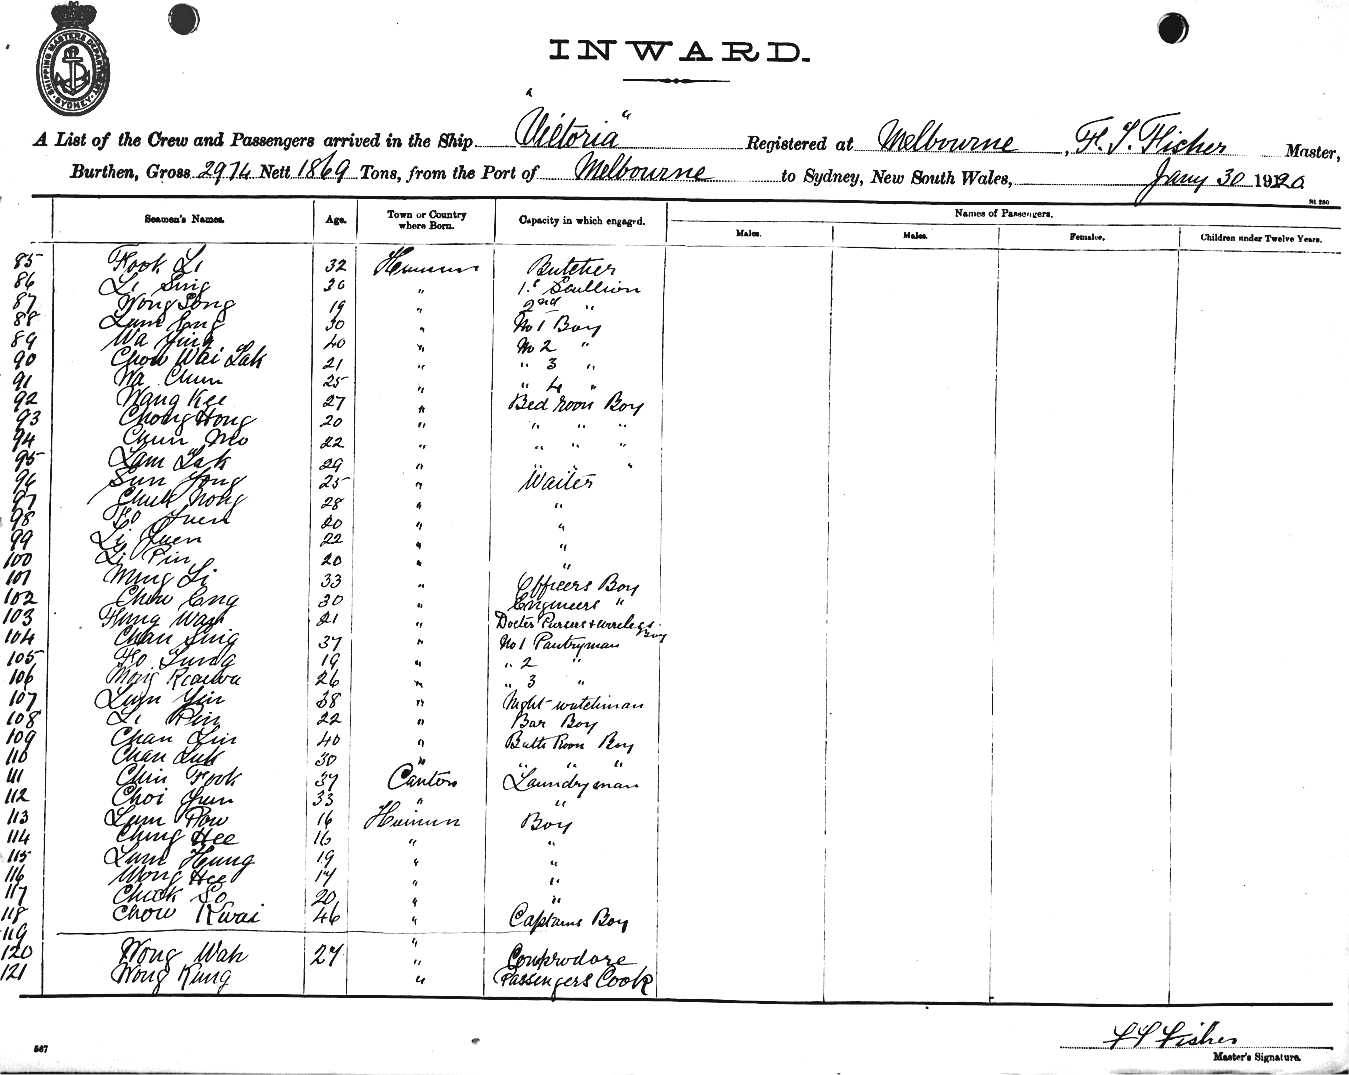 SHIPPING MASTERS DEPARTMENT SYDNEY
INWARD.
A List of the Crew and Passengers arrived in the Ship "Victoria" Registered at Melbourne, Master,
Burthen, Gross 2974 Nett 1869 Tons, from the Port of Melbourne to Sydney, New South Wales, Jany 30 1920
Seamen's Names. Age. Town or Country where Born. Capacity in which engaged. Names of Passengers.
Males. Males. Females. Children under Twelve Years.
85 Fook Li 32 Butcher
86 Li Sing 30 " Scullion
87 Wong Song 19 " 2nd "
88 Lum 30 " No 1 Boy
89 Wa Ying 40 " No 2 "
90 Chow Wai Lak 21 " " 3 "
91 Wa Chun 25 " " 4 "
92 Wang Kee 27 " Bed room Boy
93 Chong Hong 20 " " " "
94 Chun Mo 22 " " " "
95 Lam Lak 29 " " " "
96 Sun Yong 25 " Waiter
97 28 " "
98 20 " "
99 Li 22 " "
100 Li Pin 20 " "
101 Ming Li 33 " Officers Boy
102 Chow Eng 30 " Engineers "
103 Hung Way 21 " Docter Pursers + wireless Boy
104 Chan Sing 37 " No 1 Pantryman
105 Ho Sung 19 " " 2 "
106 26 " " 3 "
107 Lum Yin 38 " Night-watchman
108 Li Pin 22 " Bar Boy
109 Chan Lin 40 " Boy
110 Chan Luk 30 " " " "
111 Chin Fook 37 Canton Laundryman
112 Choi 33 " "
113 Lum Pow 16 Boy
114 Ching Hee 16 " "
115 Lum Hung 19 " "
116 Wong Hee 17 " "
117 Chick So 20 " "
118 Chow Kwai 46 " Captains Boy
119 "
120 Wong Wah 27 "
121 Wong Kung " Passengers Cook
567
Master's Signature.